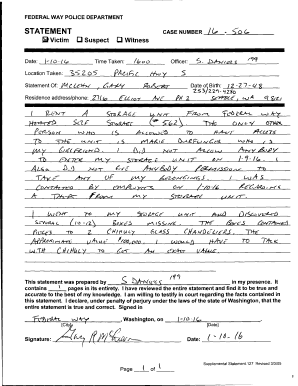 FEDERAL WAY POLICE DEPARTMENT
STATEMENT CASE NUMBER 16-506
Victim Suspect Witness
Date: 1-10-16 Time Taken: 1600 Officer: S. DANIELS 199
Location Taken: 35205 PACIFIC HWY S
Statement Of: MCLEAN, GARY ROBERT Date of Birth: 12-27-48
253/229-4236
Residence address/phone: 2716 ELLIOT AVE SEATTLE, WA
I RENT A STORAGE UNIT FROM FEDERAL WAY
SIZE STORAGE (#562). THE ONLY OTHER
PERSON WHO IS ALLOWED TO HAVE ACCESS
TO THE UNIT IS MARIE WHO IS
MY GIRLFRIEND. I DID NOT ALLOW ANYBODY
TO ENTER MY STORAGE UNIT ON 1-9-16. I
ALSO DID NOT GIVE ANYBODY PERMISSION TO
TAKE ANY OF MY BELONGINGS. I WAS
CONTACTED BY EMPLOYEES ON 1/10/16 REGARDING
A THEFT FROM MY STORAGE UNIT.
I WENT TO MY STORAGE UNIT AND DISCOVERED
SEVERAL (10-12) BOXES MISSING. THE BOXES CONTAINED
PIECES TO 2 CHIHULY GLASS CHANDELIERS. THE
APPROXIMATE VALUE I WOULD HAVE TO TALK
WITH CHIHULY TO GET AN EXACT VALUE.
This statement was prepared by S DANIELS 199 in my presence. It
contains 1 pages in its entirety. I have reviewed the entire statement and find it to be true and
accurate to the best of my knowledge. I am willing to testify in court regarding the facts contained
in this statement. I declare, under penalty of perjury under the laws of the state of Washington, that the
entire statement is true and correct. Signed in
FEDERAL WAY, Washington, on 1-10-16
(City) (Date)
Signature: Date: 1-10-16
Supplemental Statement 127 Revised
Page 1 of 1